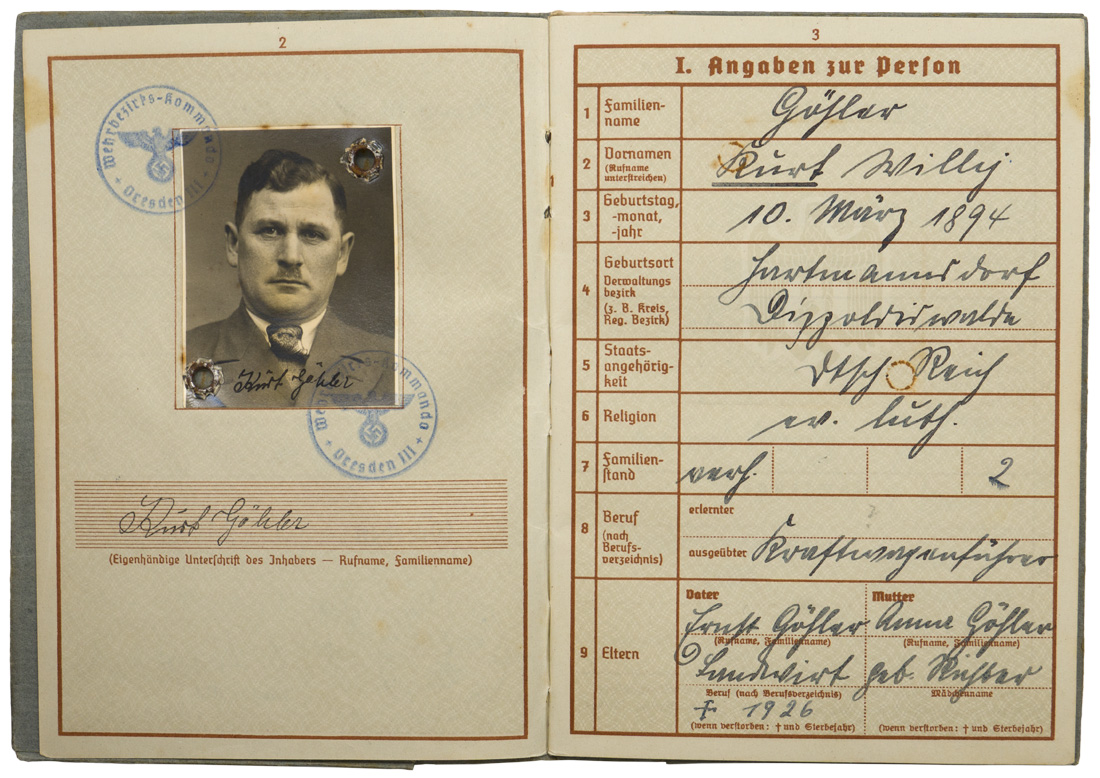 2
Wehrbezirks-Kommando
Dresden III
Kurt Göhler
Wehrbezirks-Kommando
Dresden III
Kurt Göhler
(Eigenhändige Unterschrift des Inhabers — Rufname, Familienname)
3
I. Angaben zur Person
1 Familien-
name
Göhler
2 Vornamen
(Rufname
unterstreichen)
Kurt Willy
3 Geburtstag,
-monat,
-jahr
10. März 1894
4 Geburtsort
Verwaltungs
bezirk
(z. B. Kreis,
Reg. Bezirk)
Hartmannsdorf
Dippoldiswalde
5 Staats-
angehörig-
keit
Dtsch Reich
6 Religion
ev. luth.
7 Familien-
stand
verh. 2
8 Beruf
(nach
Berufs-
verzeichnis)
erlernter
ausgeübter Kraftwagenführer
9 Eltern
Vater
Ernst Göhler
(Rufname, Familienname)
Landwirt
Beruf (nach Berufsverzeichnis)
† 1926
(wenn verstorben: † und Sterbejahr)
Mutter
Anna Göhler
(Rufname, Familienname)
geb. Richter
Mädchenname
(wenn verstorben: † und Sterbejahr)